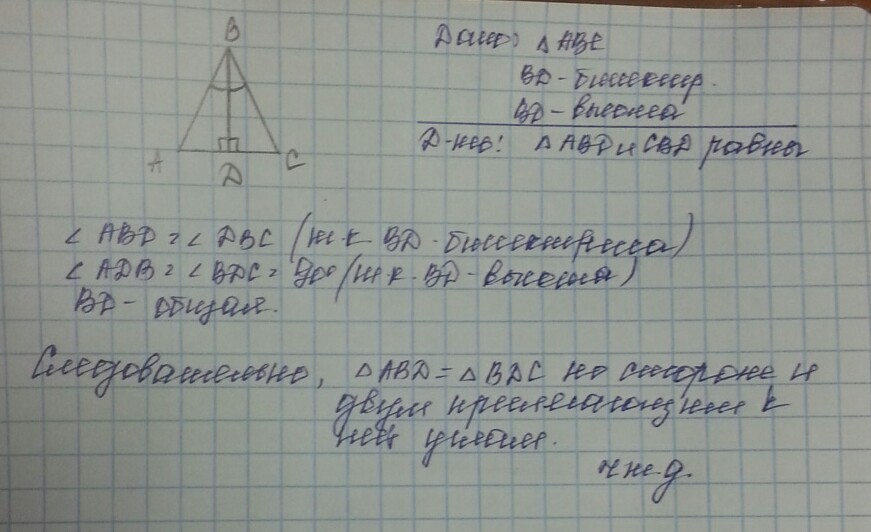 B
A
D
C
Дано: △ABC
BD - биссектр.
BD - высота
Д-ть: △ABD и CBD равны
∠ ABD = ∠ DBC (т.к. BD - биссектриса)
∠ ADB = ∠ BDC = 90° (т.к. BD - высота)
BD - общая.
Следовательно, △ABD = △BDC по стороне и
двум прилегающим к
ней углам.
ч.т.д.